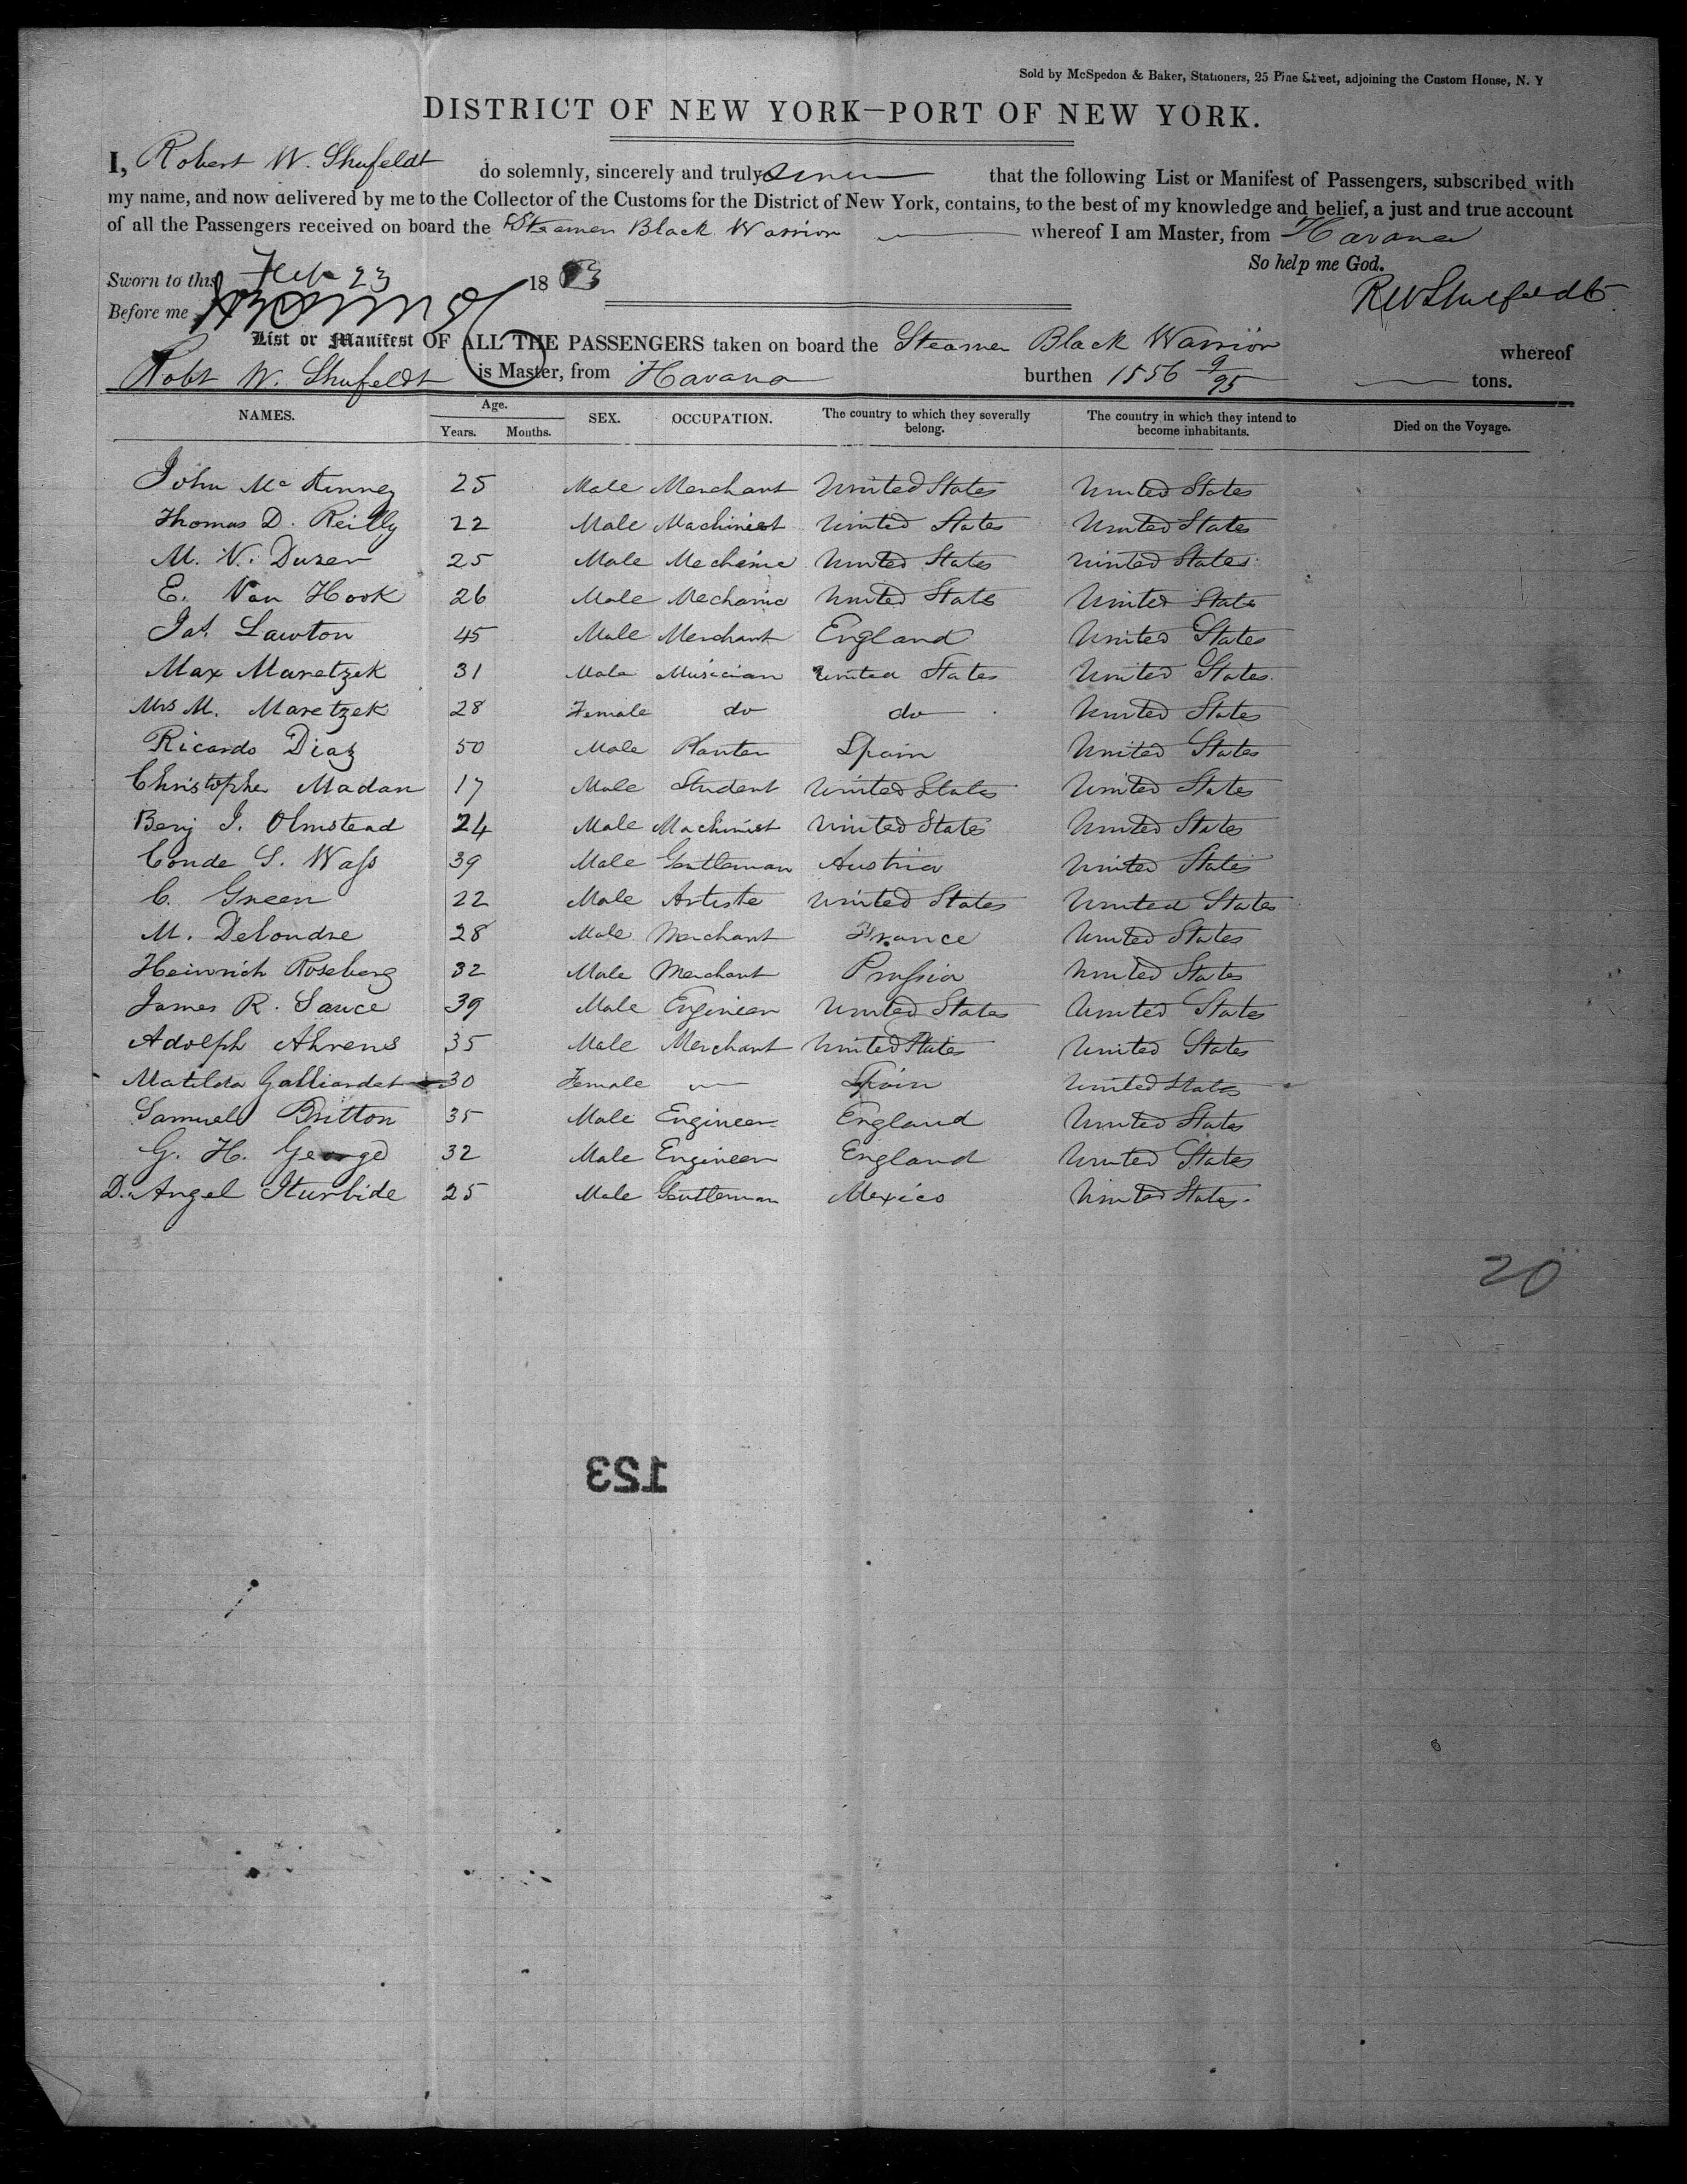 Sold by McSpedon & Baker, Stationers, 25 Pine Street, adjoining the Custom House, N. Y
DISTRICT OF NEW YORK—PORT OF NEW YORK.
I, Robert W. Shufeldt do solemnly, sincerely and truly swear that the following List or Manifest of Passengers, subscribed with
my name, and now delivered by me to the Collector of the Customs for the District of New York, contains, to the best of my knowledge and belief, a just and true account
of all the Passengers received on board the Steamer Black Warrior whereof I am Master, from Havana
So help me God.
Sworn to this Feb 23 1853
RWShufeldt
Before me
List or Manifest OF ALL THE PASSENGERS taken on board the Steamer Black Warrior whereof
Robt W. Shufeldt is Master, from Havana burthen 1556 9/95 tons.
NAMES. Age. SEX. OCCUPATION. The country to which they severally belong. The country in which they intend to become inhabitants. Died on the Voyage.
Years. Months.
John Mc Kinney 25 Male Merchant United States United States
Thomas D. Reilly 22 Male Machinist United States United States
M. V. Duzer 25 Male Mechanic United States United States
E. Van Hook 26 Male Mechanic United States United States
Jas. Lawton 45 Male Merchant England United States
Max Maretzek 31 Male Musician United States United States
Mrs M. Maretzek 28 Female do do United States
Ricardo Diaz 50 Male Planter Spain United States
Christopher Madan 17 Male Student United States United States
Benj J. Olmstead 24 Male Machinist United States United States
Conde S. Wass 39 Male Gentleman Austria United States
C. Green 22 Male Artiste United States United States
M. Delondre 28 Male Merchant France United States
Heinrich Roseberg 32 Male Merchant Prussia United States
James R. Sauce 39 Male Engineer United States United States
Adolph Ahrens 35 Male Merchant United States United States
Matilda Galliardet 30 Female Spain United States
Samuell Britton 35 Male Engineer England United States
G. H. George 32 Male Engineer England United States
D. Angel Iturbide 25 Male Gentleman Mexico United States
20
123